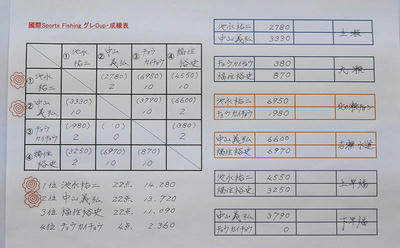 國際Sports Fishing グレCup・成績表
① 池永 祐二 ② 中山 義弘 ③ チョウ カイチョウ ④ 福住 裕史
① 池永 祐二 (2780) 2 (6950) 10 (4550) 10
② 中山 義弘 (3330) 10 (3790) 10 (6600) 2
③ チョウ カイチョウ (1980) 2 ( 0) 0 (380) 2
④ 福住 裕史 (3250) 2 (6970) 10 (870) 10
1位 池永祐二 22点 14.280
2位 中山義弘 22点 13.720
3位 福住裕史 22点 11.090
4位 チョウカイチョウ 4点 2.360
池永祐二 2780
中山義弘 3330
チョウカイチョウ 380
福住裕史 870
池永祐二 6950
チョウカイチョウ 1980
中山義弘 6600
福住裕史 6970
池永祐二 4550
福住裕史 3250
上早福
中山義弘 3790
チョウカイチョウ 0
下早福